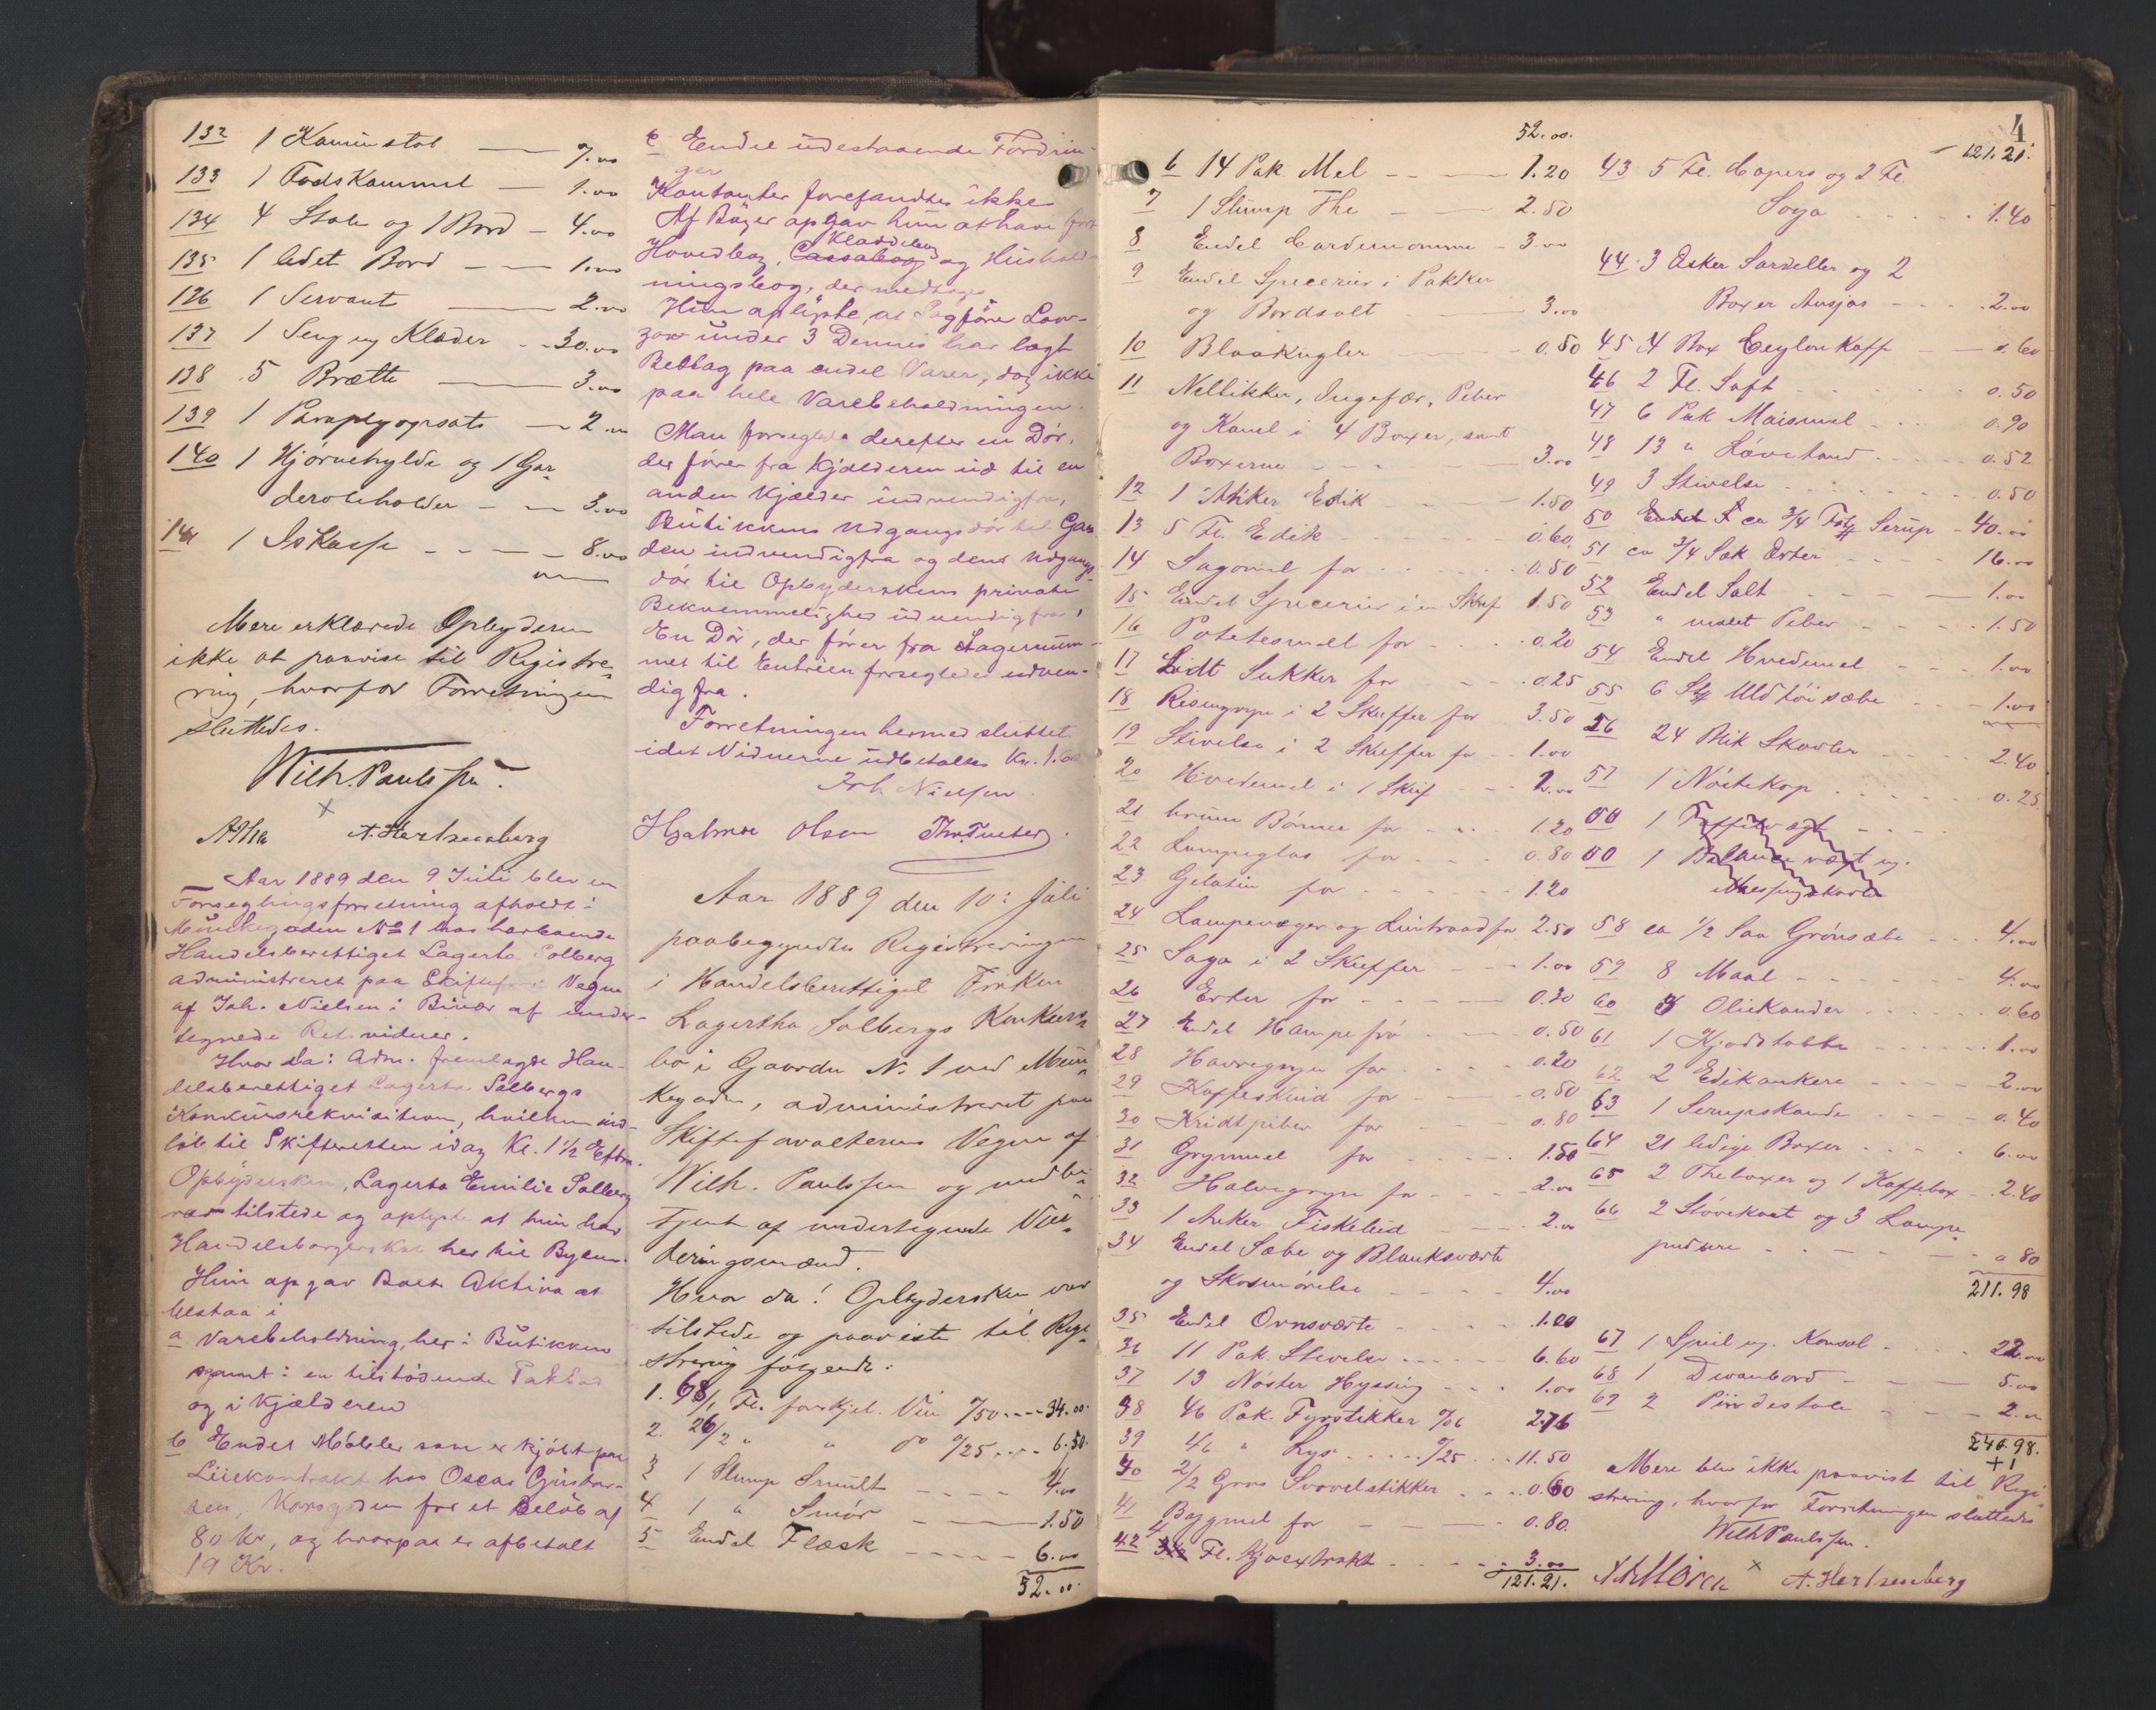 132 1 Kaminstol — 7.00
133 1 Fodskammel — 1.00
134 4 Stole og 1 Bord — 4.00
135 1 lidet Bord — 1.00
126 1 Servant — 2.00
137 1 Seng og Klæder — 30.00
138 5 Brætte — 3.00
139 1 Paraplyopsats — 2.00
140 1 Hjørnehylde og 1 Gar-
derobeholder — 3.00
141 1 Iskasse — 8.00
Mere erklærede Opbyderen
ikke at paavise til Registre-
ring, hvorfor Forretningen
sluttedes.
Wilh. Paulssen.
x
A. Hertzenberg
Aar 1889 den 9 Juli blev en
Forseglingsforretning afholdt i
Munkegaden No 1 hos herboende
Handelsberettiget Lagerta Solberg
administreret paa Skiftef. Vegne
af Joh. Nielsen i Bivær af under-
tegnede Retsvidner.
Hvor da: Adm. fremlagde Han-
delsberettiget Lagerta Solbergs
Konkursrekvisition, hvilken ind-
løb til Skifteretten idag Kl. 1½ Efterm.
Opbydersken, Lagerta Emilie Solberg
var tilstede og oplyste at hun har
Handelsborgerskab her til Byen.
Hun opgav Boets Aktiva at
bestaa i
a Varebeholdning, her i Butikken
samt i en tilstødende Pakbod
og i Kjælderen
b Endel Møbler som er kjøbt paa
Leiekontrakt hos Oscar Gustav-
sen, Kongsgaden for et Beløb af
80 Kr, og hvorpaa er afbetalt
19 Kr.
c Endel udestaaende Fordrin-
ger
Kontanter forefandtes ikke
Af Bøger opgav hun at have ført
Kladdebog
Hovedbog, Cassabog og Hushold-
ningsbog, der medtoges
Hun oplyste, at Sagfører Lor-
zow under 3 Dennes har lagt
Beslag paa endel Varer, dog ikke
paa hele Varebeholdningen.
Man forseglede derefter en Dør,
der fører fra Kjælderen ud til en
anden Kjælder indvendigfra,
Butikkens Udgangsdør til Gaa-
den indvendigfra og dens Udgangs-
dør til Opbyderskens private
Bekvemmelighed udvendigfra,
En Dør, der fører fra Lagerrum-
met til Entréen forsegledes udven-
digfra.
Forretningen hermed sluttet
idet Vidnerne udbetaltes Kr. 1.60
Joh. Nielsen
Hjalmar Olsen
Aar 1889 den 10: Juli
paabegyndtes Registreringen
i Handelsberettiget Frøken
Lagertha Solbergs Konkurs-
bo i Gaarden N. 1 ved Mun-
kegaden, administreret paa
Skifteforvalterens Vegne af
Wilh. Paulssen og medbe-
tjent af undertegnede Vur-
deringsmænd.
Hvor da! Opbydersken var
tilstede og paaviste til Regi-
strering følgende:
1. 68/1 Fl. forskjel. Vin a/50 --- 34.00
2. 26/2 " " do a/25 --- 6.50
3 1 Slump Smult ---- 4.00
4 1 " Smør — 1.50
5 Endel Flæsk ---- 6.00
52.00
52.00.
6 14 Pak Mel — 1.20
7 1 Slump The — 2.50
8 Endel Cardemomme - 3.00
9 Endel Specerier i Pakker
og Bordsalt — 3.00
10 Blaakugler — 0.50
11 Nellikker, Ingefær, Peber
og Kanel i 4 Boxer, samt
Boxerne — 3.00
12 1 Anker Edik — 1.50
13 5 Fl. Edik — 0.60
14 Sagomel for — 0.50
15 Endel Specerier i en Skuf 1.50
16 Potetesmel for 0.20
17 Lidt Sukker for 0.25
18 Risengryn i 2 Skuffer for 3.50
19 Stivelse i 2 Skuffer for 1.00
20 Hvedemel i 1 Skuf 2.00
21 brune Bønner for 1.20
22 Lampeglas for 0.80
23 Gelatin for 1.20
24 Lampevæger og Lintraad for 2.50
25 Sago i 2 Skuffer 1.00
26 Erter for 0.30
27 Endel Hampefrø 0.50
28 Havregryn for 0.20
29 Kaffeskind for 0.50
30 Kridtpiber for 0.80
31 Grynmel for 1.50
32 Halvegryn for 2.00
33 1 Anker Fiskebud 2.00
34 Endel Sæbe og Blanksværte
og Skosmørelse 4.00
35 Endel Ovnsværte 1.00
36 11 Pak. Stivelse 6.60
37 13 Nøster Hyssing 1.00
38 46 Pak. Fyrstikker a/06 2.76
39 46 " Lys a/25 11.50
40 2/2 Gros Svovelstikker 0.60
41 Bygmel for 0.80
42 4 Fl. Kjøextrakt 3.00
121.21.
4
121.21.
43 5 Fl. Capers og 2 Fl.
Soya 1.40
44 3 Æsker Sardeller og 2
Boxer Ansjos 2.00
45 4 Box Ceylon Kaff 0.60
46 2 Fl. Saft 0.50
47 6 Pak Maismel 0.90
48 13 " 0.52
49 3 Stivelse 0.50
50 ca 3/4 Serup 40.00
51 ca 3/4 Sæk Erter 16.00
52 Endel Salt 1.00
53 " malet Peber 1.50
54 Endel Hvedemel 1.00
55 6 Uldtøisæbe 1.00
56 24 Blik Skovler 2.40
57 1 Nøstekop 0.25
1
1 Balancevægt og
Messingskaale
58 ca 1/2 Saa Grønsæbe 4.00
59 8 Maal 4.00
60 Oliekander 0.60
61 1 Kjødstabbe 1.00
62 2 Edikankere 2.00
63 1 Serupskande 0.40
64 21 ledige Boxer 6.00
65 2 Theboxer og 1 Kaffebox 2.40
66 2 Støvekost og 3 Lampe-
pudsere 0.80
211.98
67 1 Speil og Konsol 22.00
68 1 Divanbord 5.00
69 2 Pindestole 2.00
240.98.
+1
Mere blev ikke paavist til Regi-
strering, hvorfor Forretningen sluttedes
Wilh Paulssen.
x A. Hertzenberg